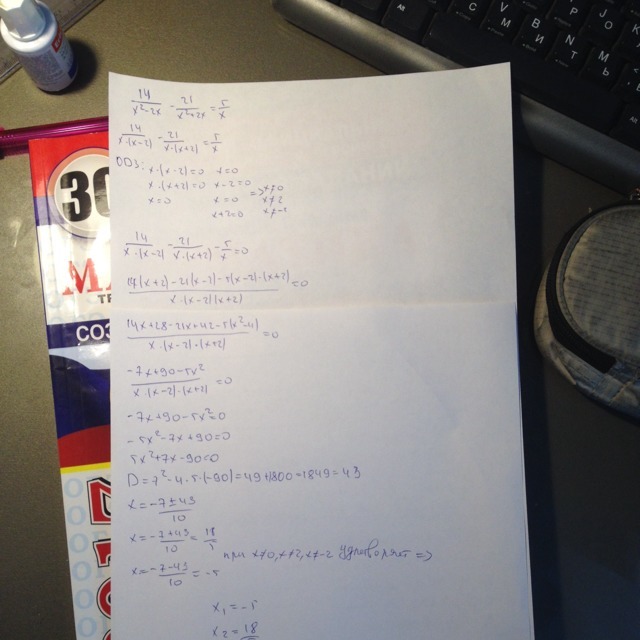 14/(x²-2x) - 21/(x²+2x) = 5/x
14/(x·(x-2)) - 21/(x·(x+2)) = 5/x
ОДЗ: x·(x-2)=0 x=0
x·(x+2)=0 x-2=0 => x≠0
x=0 x=0 x≠2
x+2=0 x≠-2
14/(x·(x-2)) - 21/(x·(x+2)) - 5/x = 0
(14(x+2)-21(x-2)-5(x-2)·(x+2))/(x·(x-2)(x+2)) = 0
(14x+28-21x+42-5(x²-4))/(x·(x-2)·(x+2)) = 0
(-7x+90-5x²)/(x·(x-2)·(x+2)) = 0
-7x+90-5x²=0
-5x²-7x+90=0
5x²+7x-90=0
D=7²-4·5·(-90)=49+1800=1849=43
x=(-7±43)/10
x=(-7+43)/10=18/5
при x≠0, x≠2, x≠-2 удповолят =>
x=(-7-43)/10=-5
x₁=-5
x₂=18/5
30
МА
ТЕ
СОЗ